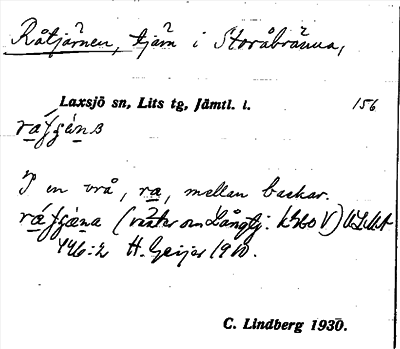 Råtjärnen, tjärn i Storåbränna,
Laxsjö sn, Lits tg, Jämtl. l.
156
I en vrå, ra, mellan backar.
(väster om Långtj: kbl60 V) ULMA
446:2 H. Geijer 1910.
C. Lindberg 1930.